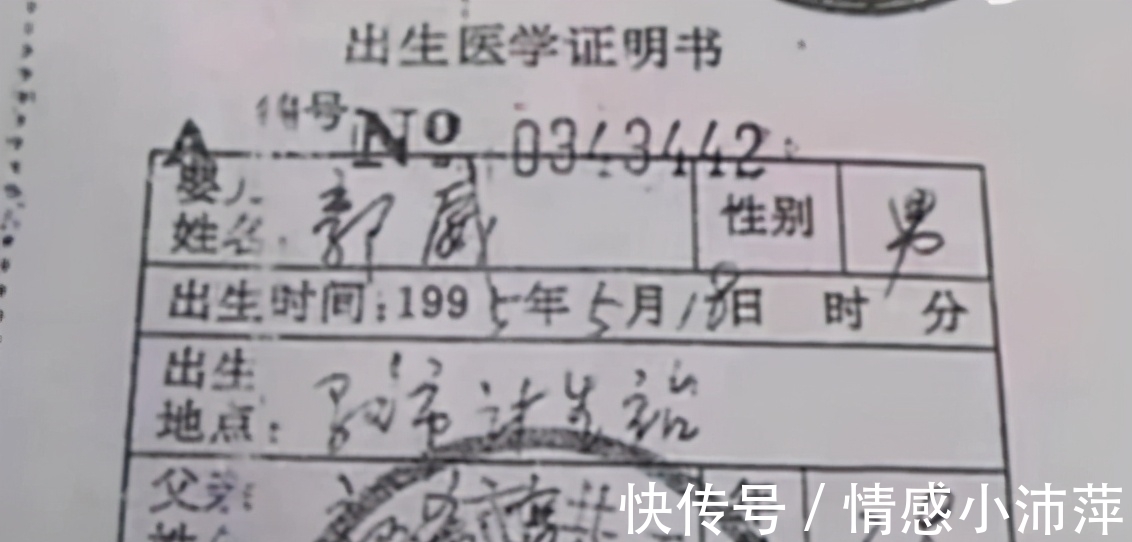 出生医学证明书
号 No 0343442
婴儿姓名:郭威 性别 男
出生时间:1995年5月18日 时 分
出生地点: 计生站
父亲
快传号 / 情感小沛萍